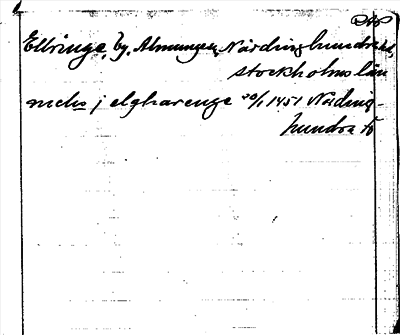 Ellringe, by, Almunge, Närdinghundra hd,
Stockholms län
nichis j elgharænge 20/1 1451 Närding-
hundra fb